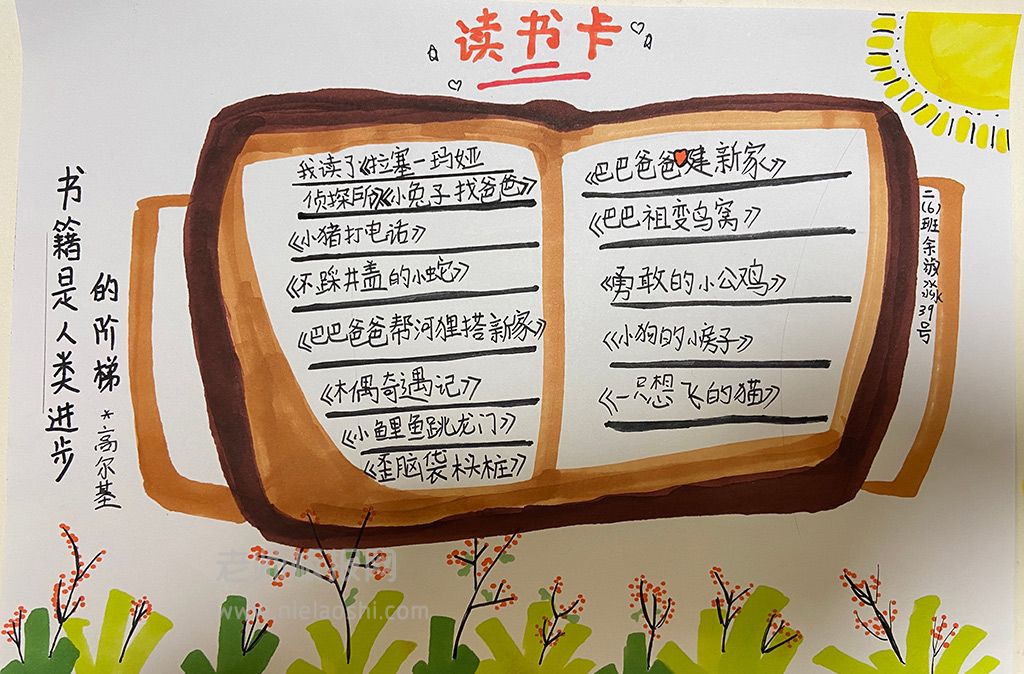 读书卡
书籍是人类进步
的阶梯 *高尔基
我读了《拉塞-玛娅
侦探所》《小兔子找爸爸》
《小猪打电话》
《不踩井盖的小蛇》
《巴巴爸爸帮河狸搭新家》
《木偶奇遇记》
《小鲤鱼跳龙门》
《歪脑袋木头桩》
《巴巴爸爸建新家》
《巴巴祖变鸟窝》
《勇敢的小公鸡》
《小狗的小房子》
《一只想飞的猫》
二(6)班余淼39号
www.nielaoshi.com